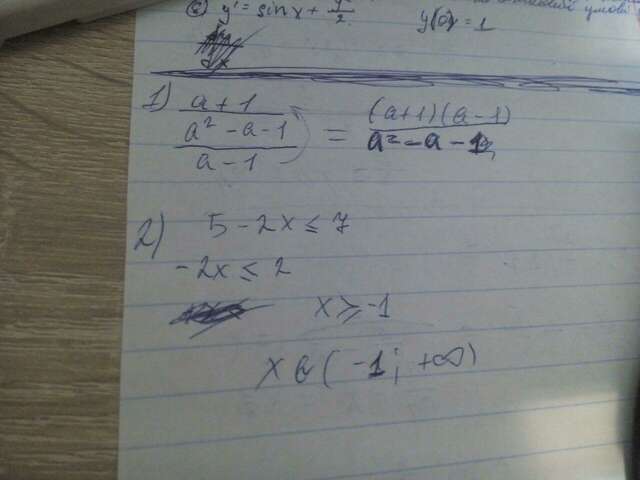 c) y' = sin x + y/2 y(0) = 1
1) a + 1 / a² - a - 1 / a - 1 = (a+1)(a-1) / a² - a - 1
2) 5 - 2x ≤ 7
-2x ≤ 2
x ≥ -1
x ∈ (-1; +∞)